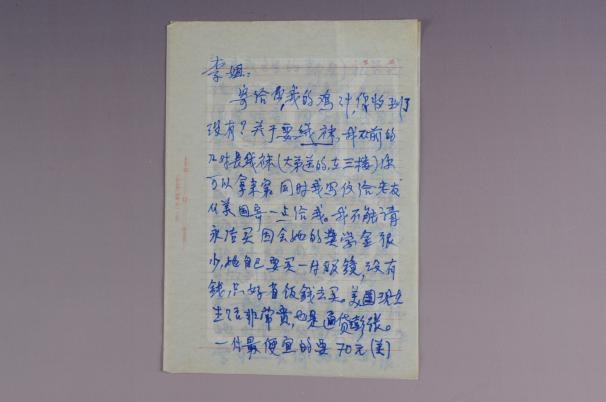 李姐：
寄给你我的鸡汁，你收到了
没有？关于要线袜，我以前的
几双长线袜（大弟送的，在三楼）你
可以拿来穿。同时我写信给老友
从美国寄一点给我。我不能请
永治买，因会她的奖学金很
少，她自己要买一付眼镜，没有
钱，只好省饭钱去买。美国现在
生活非常贵，也是通货膨张。
一付最便宜的要70元（美）